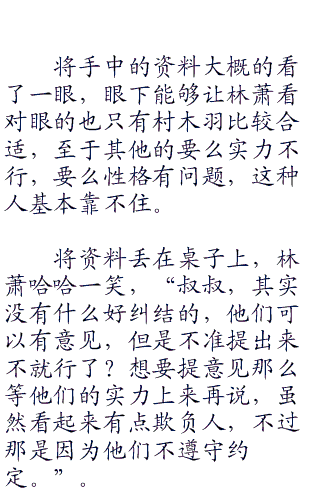 将手中的资料大概的看
了一眼，眼下能够让林萧看
对眼的也只有村木羽比较合
适，至于其他的要么实力不
行，要么性格有问题，这种
人基本靠不住。
将资料丢在桌子上，林
萧哈哈一笑，“叔叔，其实
没有什么好纠结的，他们可
以有意见，但是不准提出来
不就行了？想要提意见那么
等他们的实力上来再说，虽
然看起来有点欺负人，不过
那是因为他们不遵守约
定。”。